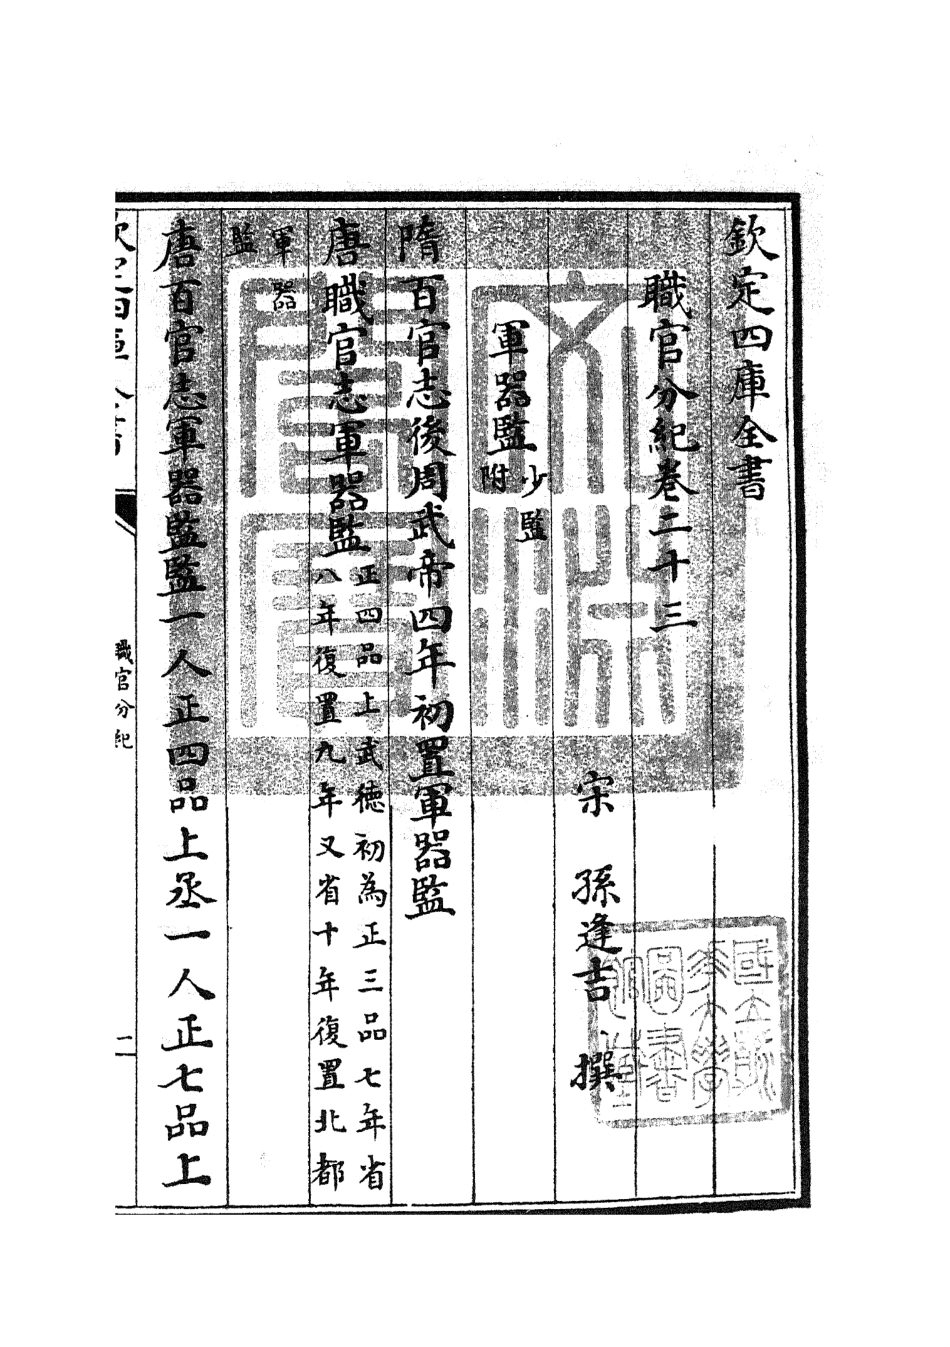 欽定四庫全書
職官分紀卷二十三
宋 孫逢吉 撰
軍器監少監附
隋百官志後周武帝四年初置軍器監
唐職官志軍器監正四品上武德初為正三品七年省八年復置九年又省十年復置北都
軍器監
唐百官志軍器監監一人正四品上丞一人正七品上
職官分紀
二
文淵閣寶